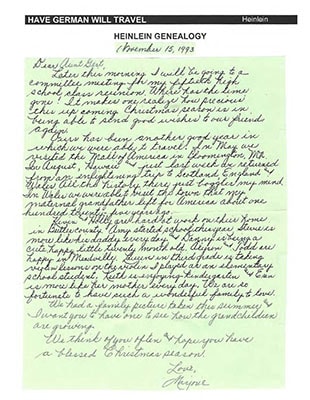 HAVE GERMAN WILL TRAVEL Heinlein
HEINLEIN GENEALOGY
November 15, 1993
Dear Aunt Gert,
Later this morning I will be going to a
committee meeting for my fiftieth high
school class reunion. Where has the time
gone! It makes one realize how precious
this upcoming Christmas season is in
being able to send good wishes to our friend
again.
Ours has been another good year in
which we were able to travel. In May we
visited the Mall of America in Bloomington, MN.
In August, Hawaii & just last week we returned
from an enlightening trip to Scotland, England &
Wales. All the history there just boggles my mind.
In Wales we were able to visit the town that my
maternal grandfather left for America about one
hundred twenty five years ago.
Kevin & Holly are hard at work on their home
in Butler county. Amy started school this year. Steve is
more like his daddy every day & is being a
cute, happy little twenty month old. Alyson & Todd are
happy in Nashville. in third grade is taking
lessons on the violin & plays at an elementary
school student, Keith is enjoying kindergarten &
is more like her mother every day. We are so
fortunate to have such a wonderful family to love.
We had a family picture taken this summer &
I want you to have one to see how the grandchildren
are growing.
We think of you often & hope you have
a blessed Christmas season.
Love,